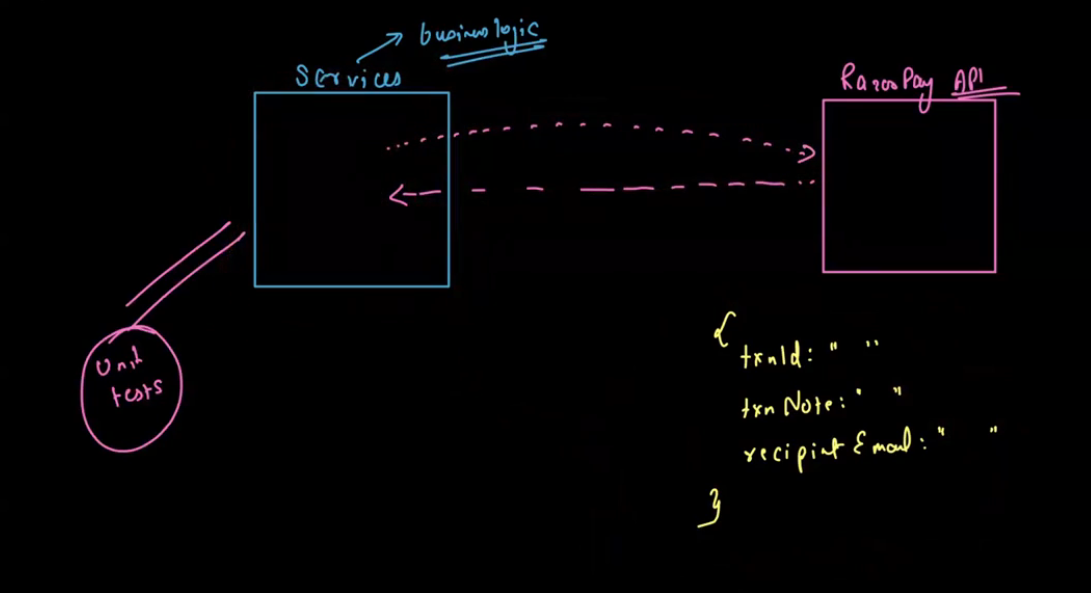 business logic
Services
RazorPay API
Unit
tests
{
txnId: " "
txnNote: " "
recipintEmail: " "
}